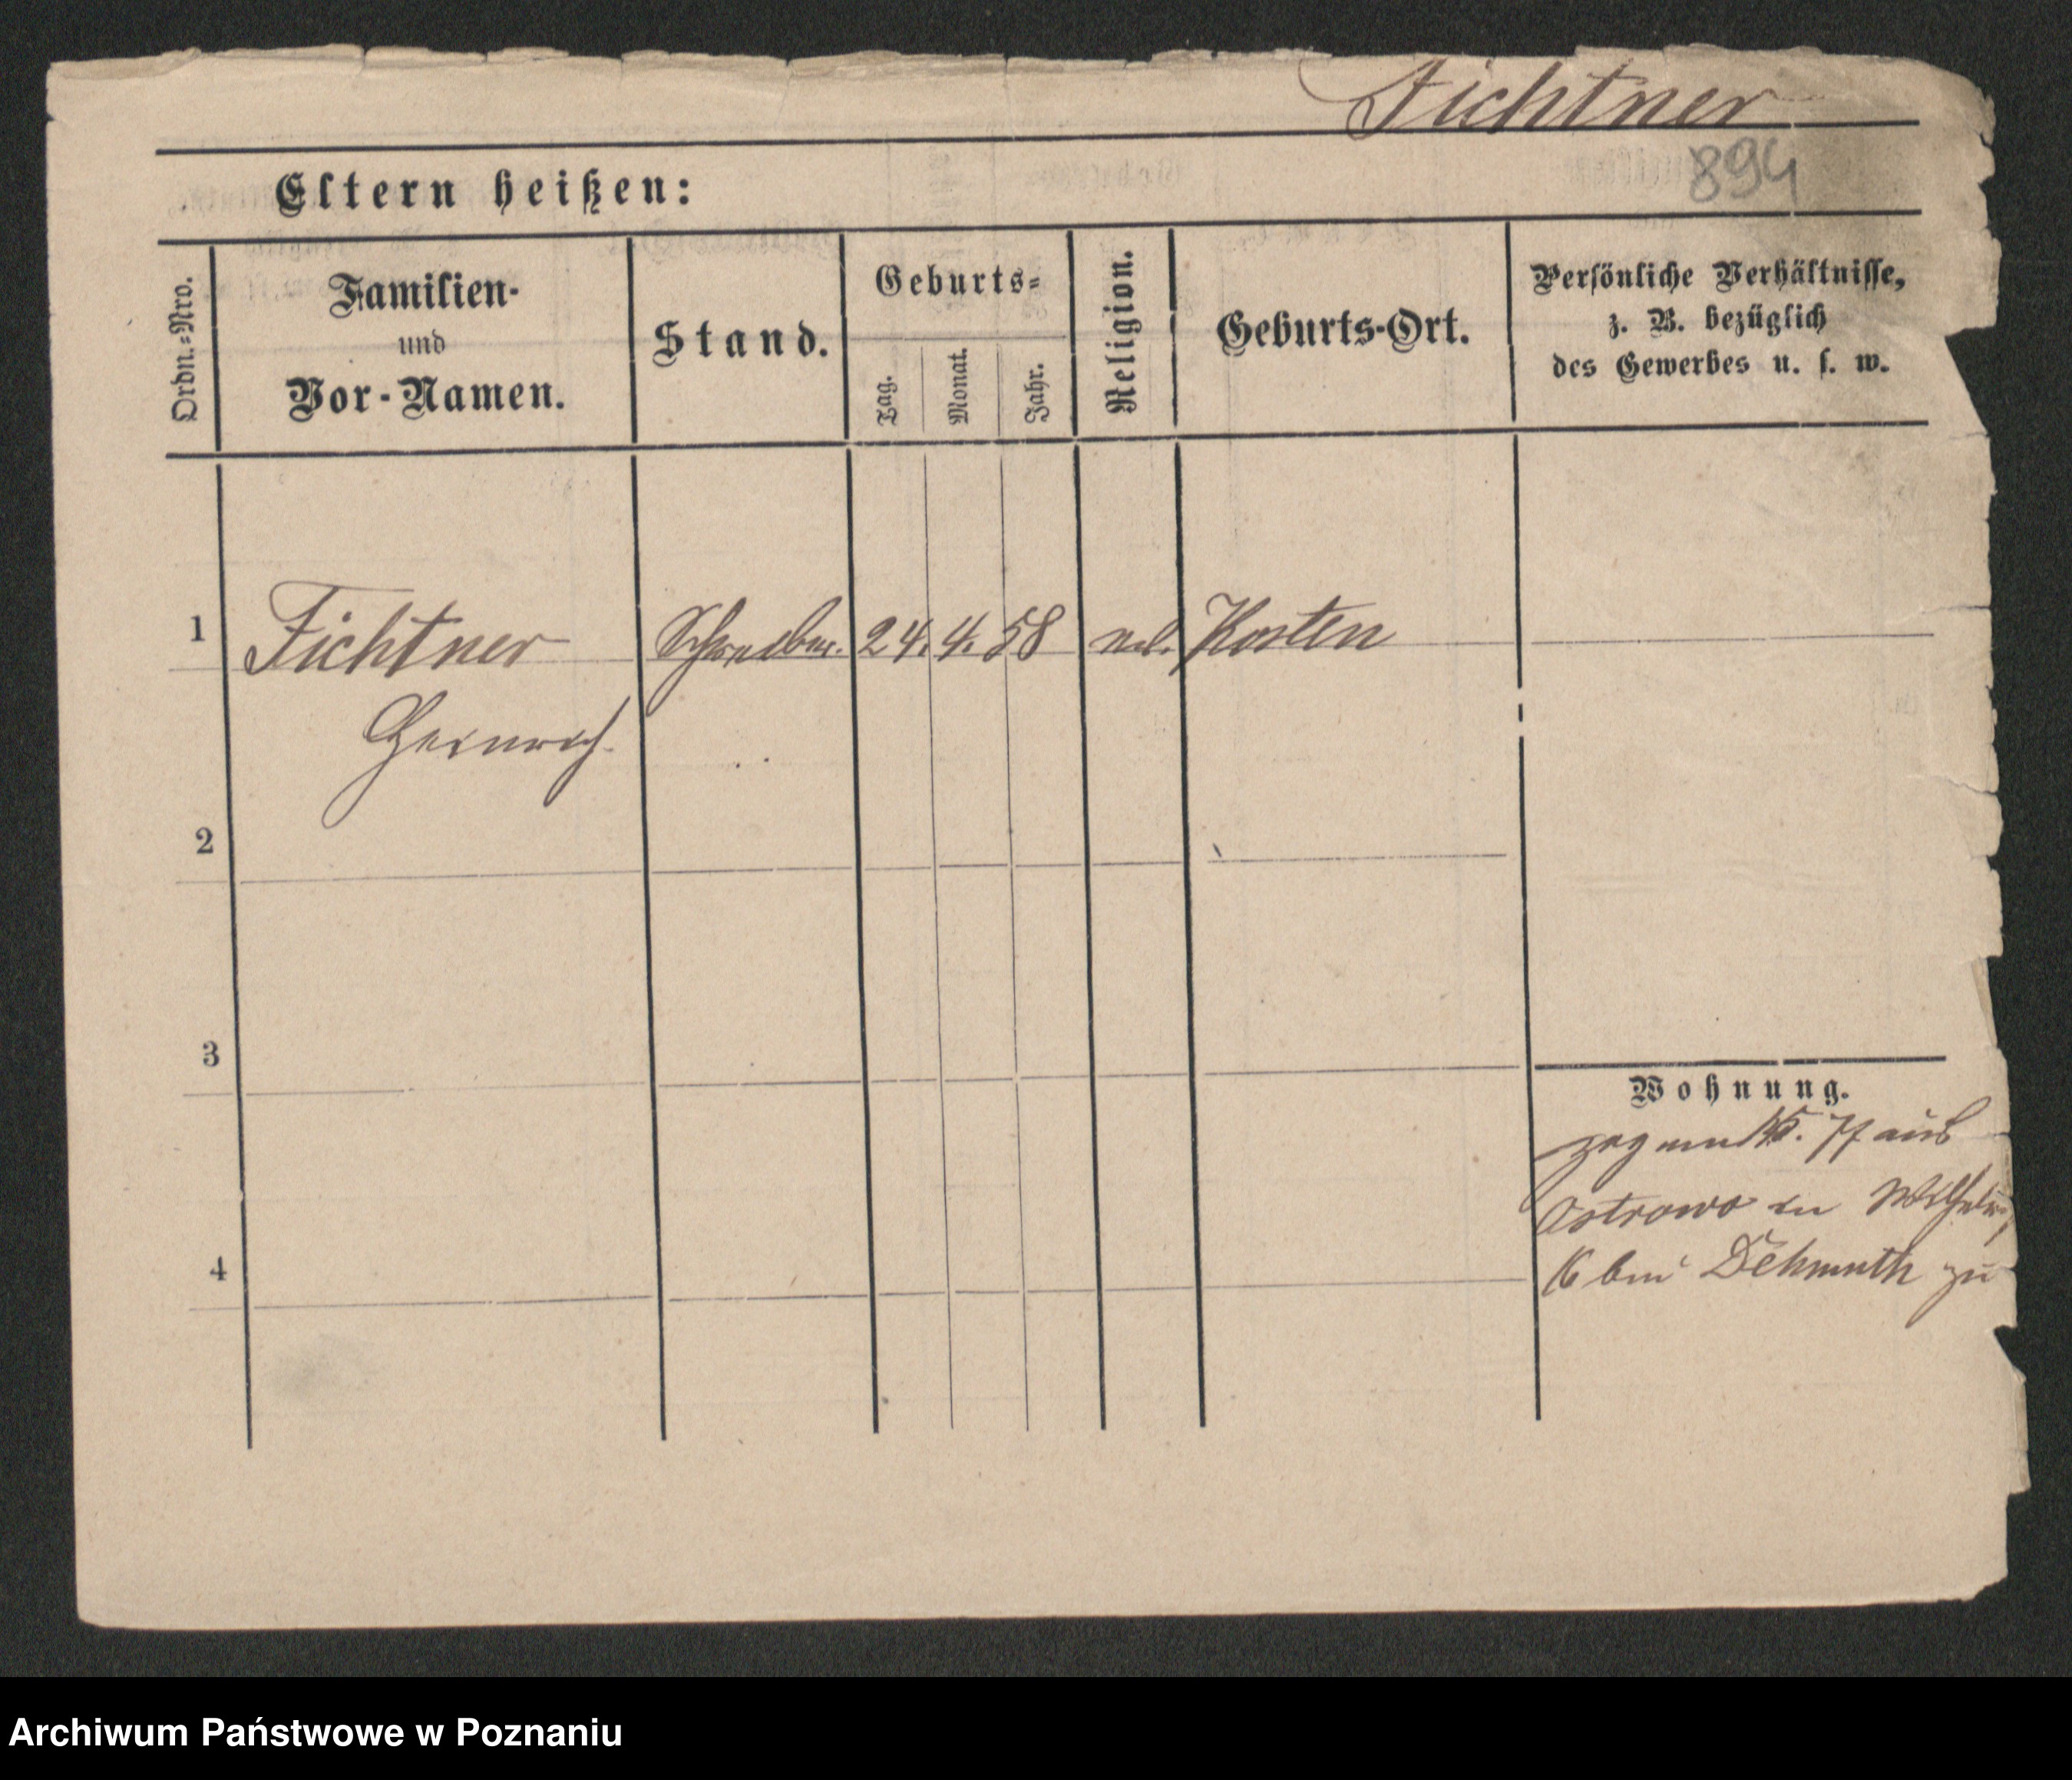 Fichtner
894
Eltern heißen:
Ordn.-Nro.
Familien-
und
Vor-Namen.
Stand.
Geburts-
Tag.
Monat.
Jahr.
Religion.
Geburts-Ort.
Persönliche Verhältnisse,
z. B. bezüglich
des Gewerbes u. s. w.
1 Fichtner Schreiber. 24. 4. 58 Kosten
Heinrich.
2
3
4
Wohnung.
zog am 77 aus
Ostrowo in
16 bei Dehmuth zu
Archiwum Państwowe w Poznaniu